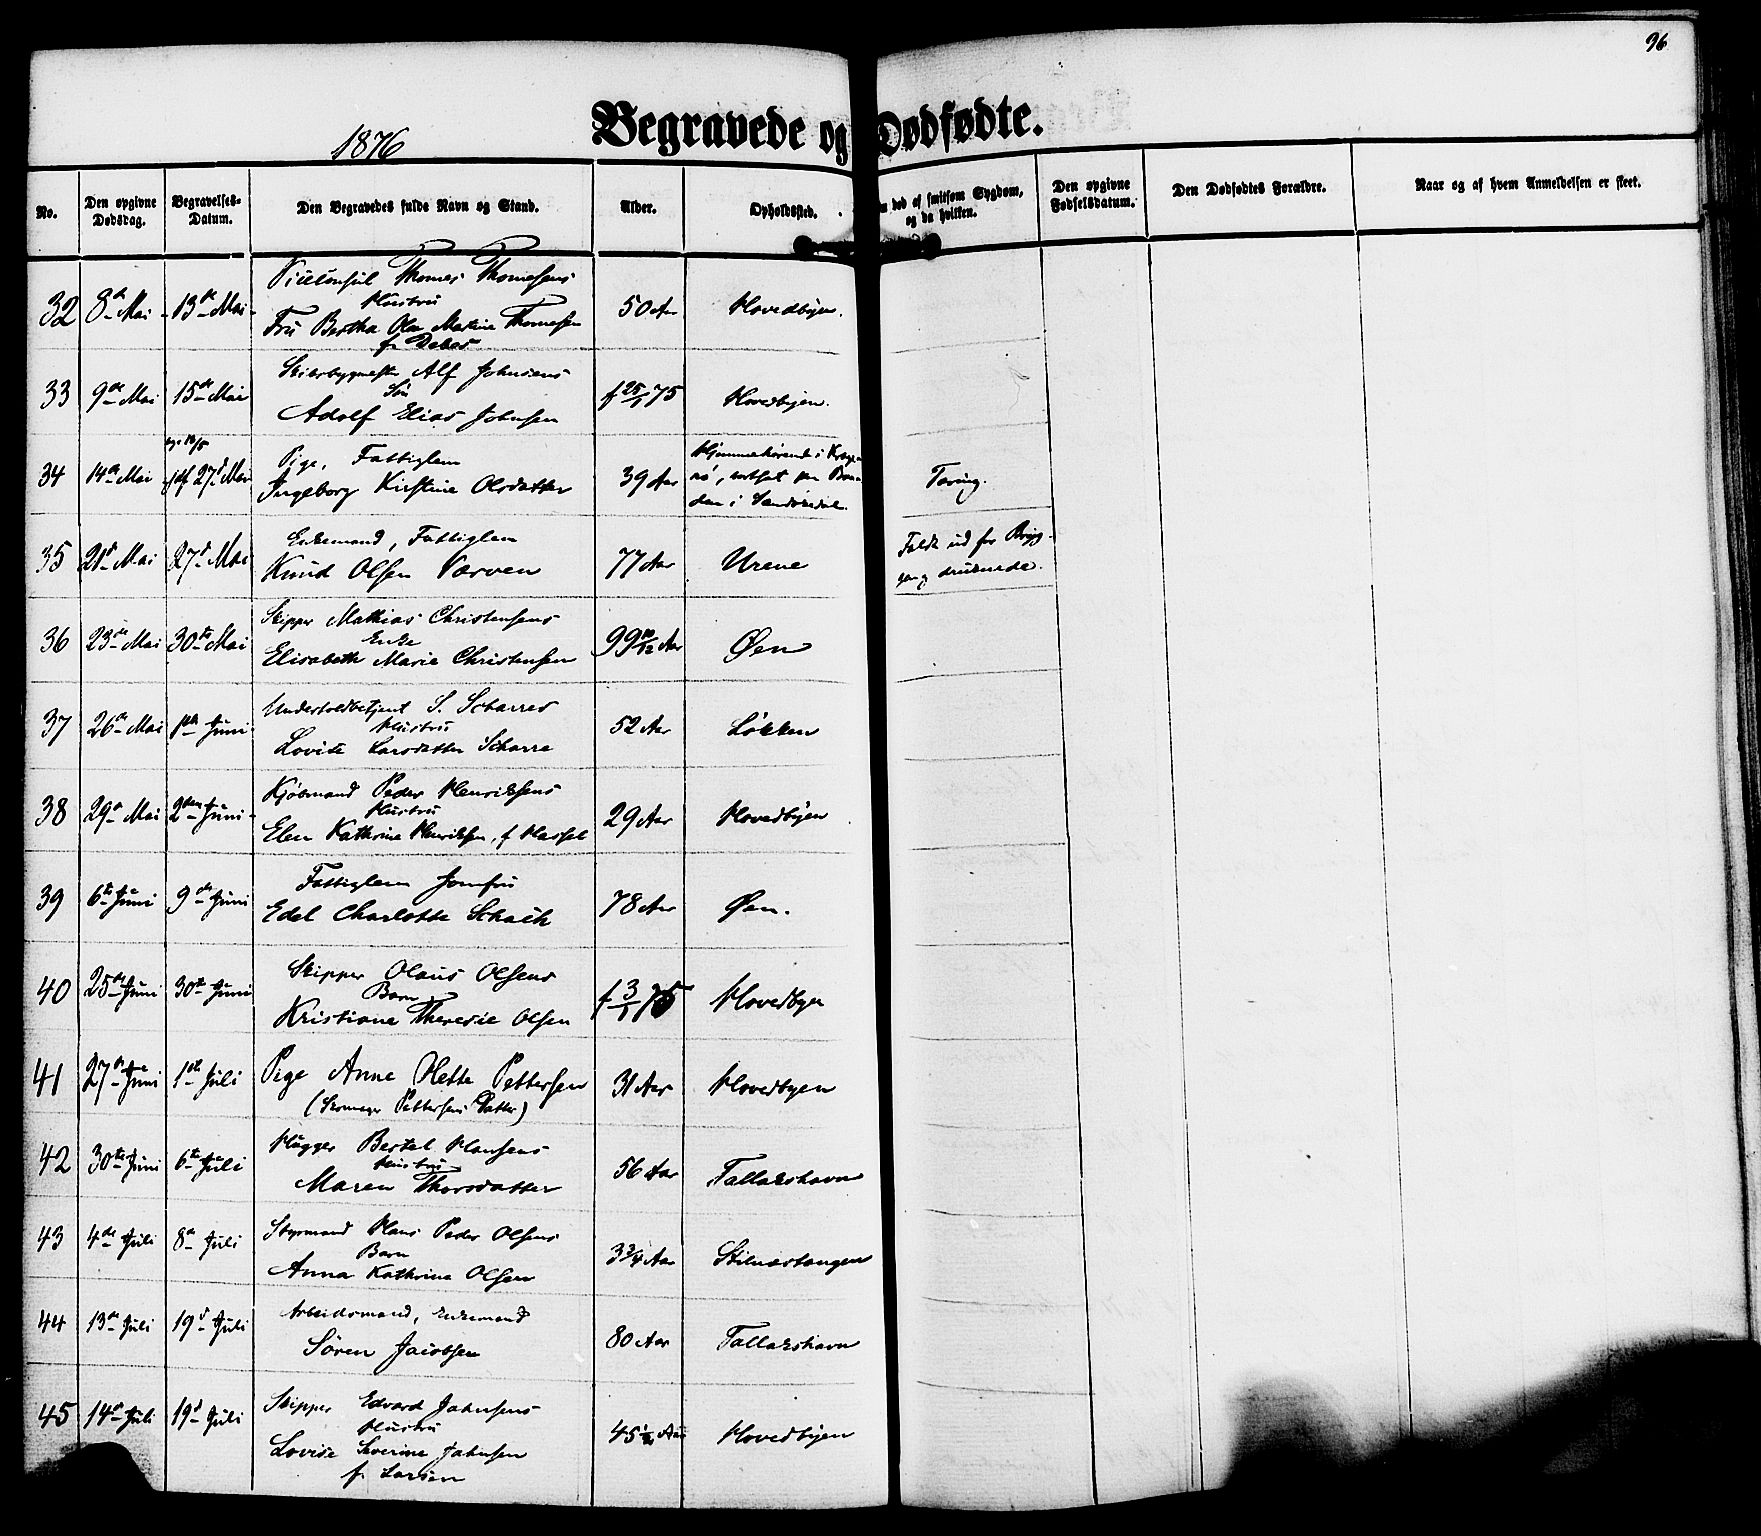 96
1876
Begravede og Dødfødte.
No.
Den opgivne Dødsdag.
Begravelses-Datum.
Den Begravedes fulde Navn og Stand.
Alder.
Opholdssted.
død af smitsom Sygdom, og da hvilken.
Den opgivne Fødselsdatum.
Den Dødfødtes Forældre.
Naar og af hvem Anmeldelsen er skeet.
Viceconsul Thomes Thomesens
Hustru
32 8de Mai 13de Mai Fru Bertha Martine Thomesen 50 Aar Hovedbyen.
f. Debes
Skibsbygmester Alf Johnsens
Søn
33 9de Mai 15de Mai Adolf Elias Johnsen f 25/1 75 Hovedbyen.
Pige, Fattiglem
34 14de Mai 27d Mai Ingeborg Kirstine Olsdatter 39 Aar Hjemmehørende i Kragerø, i Sandøkedal. Tæring.
Enkemand, Fattiglem
35 21d Mai 27d Mai Knud Olsen Værven 77 Aar Urene Faldt ud for Brygge og druknede.
Skipper Mathias Christensens
Enke
36 23de Mai 30te Mai Elisabeth Marie Christensen 99 10/12 Aar Øen
Undertoldbetjent S. Scharres
Hustru
37 26de Mai 1ste Juni Lovise Larsdatter Scharre 52 Aar Løkken
Kjøbmand Peder Henriksens
Hustru
38 29d Mai 2den Juni Elen Kathrine Henriksen, f. Hassel 29 Aar Hovedbyen
Fattiglem Jomfru
39 6te Juni 9de Juni Edel Charlotte Schach 78 Aar Øen.
Skipper Olaus Olsens
Barn
40 25de Juni 30te Juni Kristiane Theresie Olsen f 3/1 75 Hovedbyen
41 27de Juni 1ste Juli Pige Anne Hette Pettersen 31 Aar Hovedbyen
(Skomager Pettersens Datter)
Hugger Bertel Hansens
Hustru
42 30te Juni 6te Juli Maren Thorsdatter 56 Aar Tallakshavn
Styrmand Hans Peder Olsens
Barn
43 4de Juli 8de Juli Anna Kathrine Olsen 3 3/4 Aar Stilnestangen
Arbeidsmand, Enkemand
44 13de Juli 19d Juli Søren Jacobsen 80 Aar Tallakshavn
Skipper Edvard Johnsens
Hustru
45 14d Juli 19d Juli Lovise Severine Johnsen 45 1/2 Aar Hovedbyen
f. Larsen